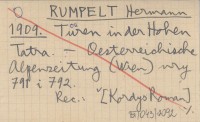 RUMPELT Hermann
1909. Türen in der Hohen
Tatra. – Oesterreichische
Alpenzeitung (Wien) nry
791 i 792.
Rec.: [Kordys Roman]